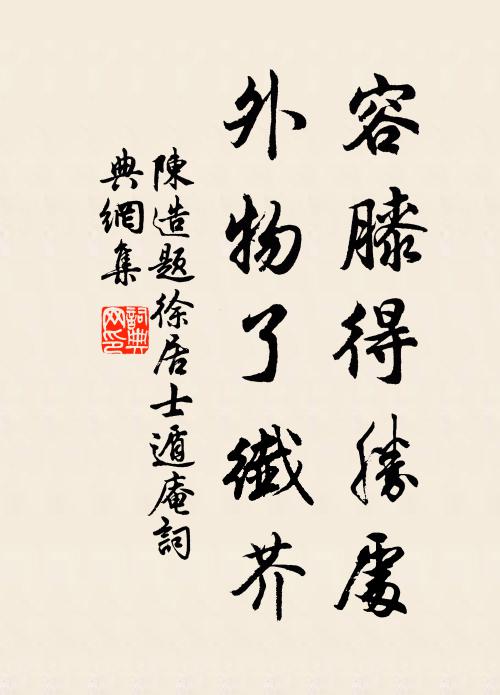 容膝得勝處
外物了纖芥
陳造題徐居士遁庵詞
典網集
詞典網印